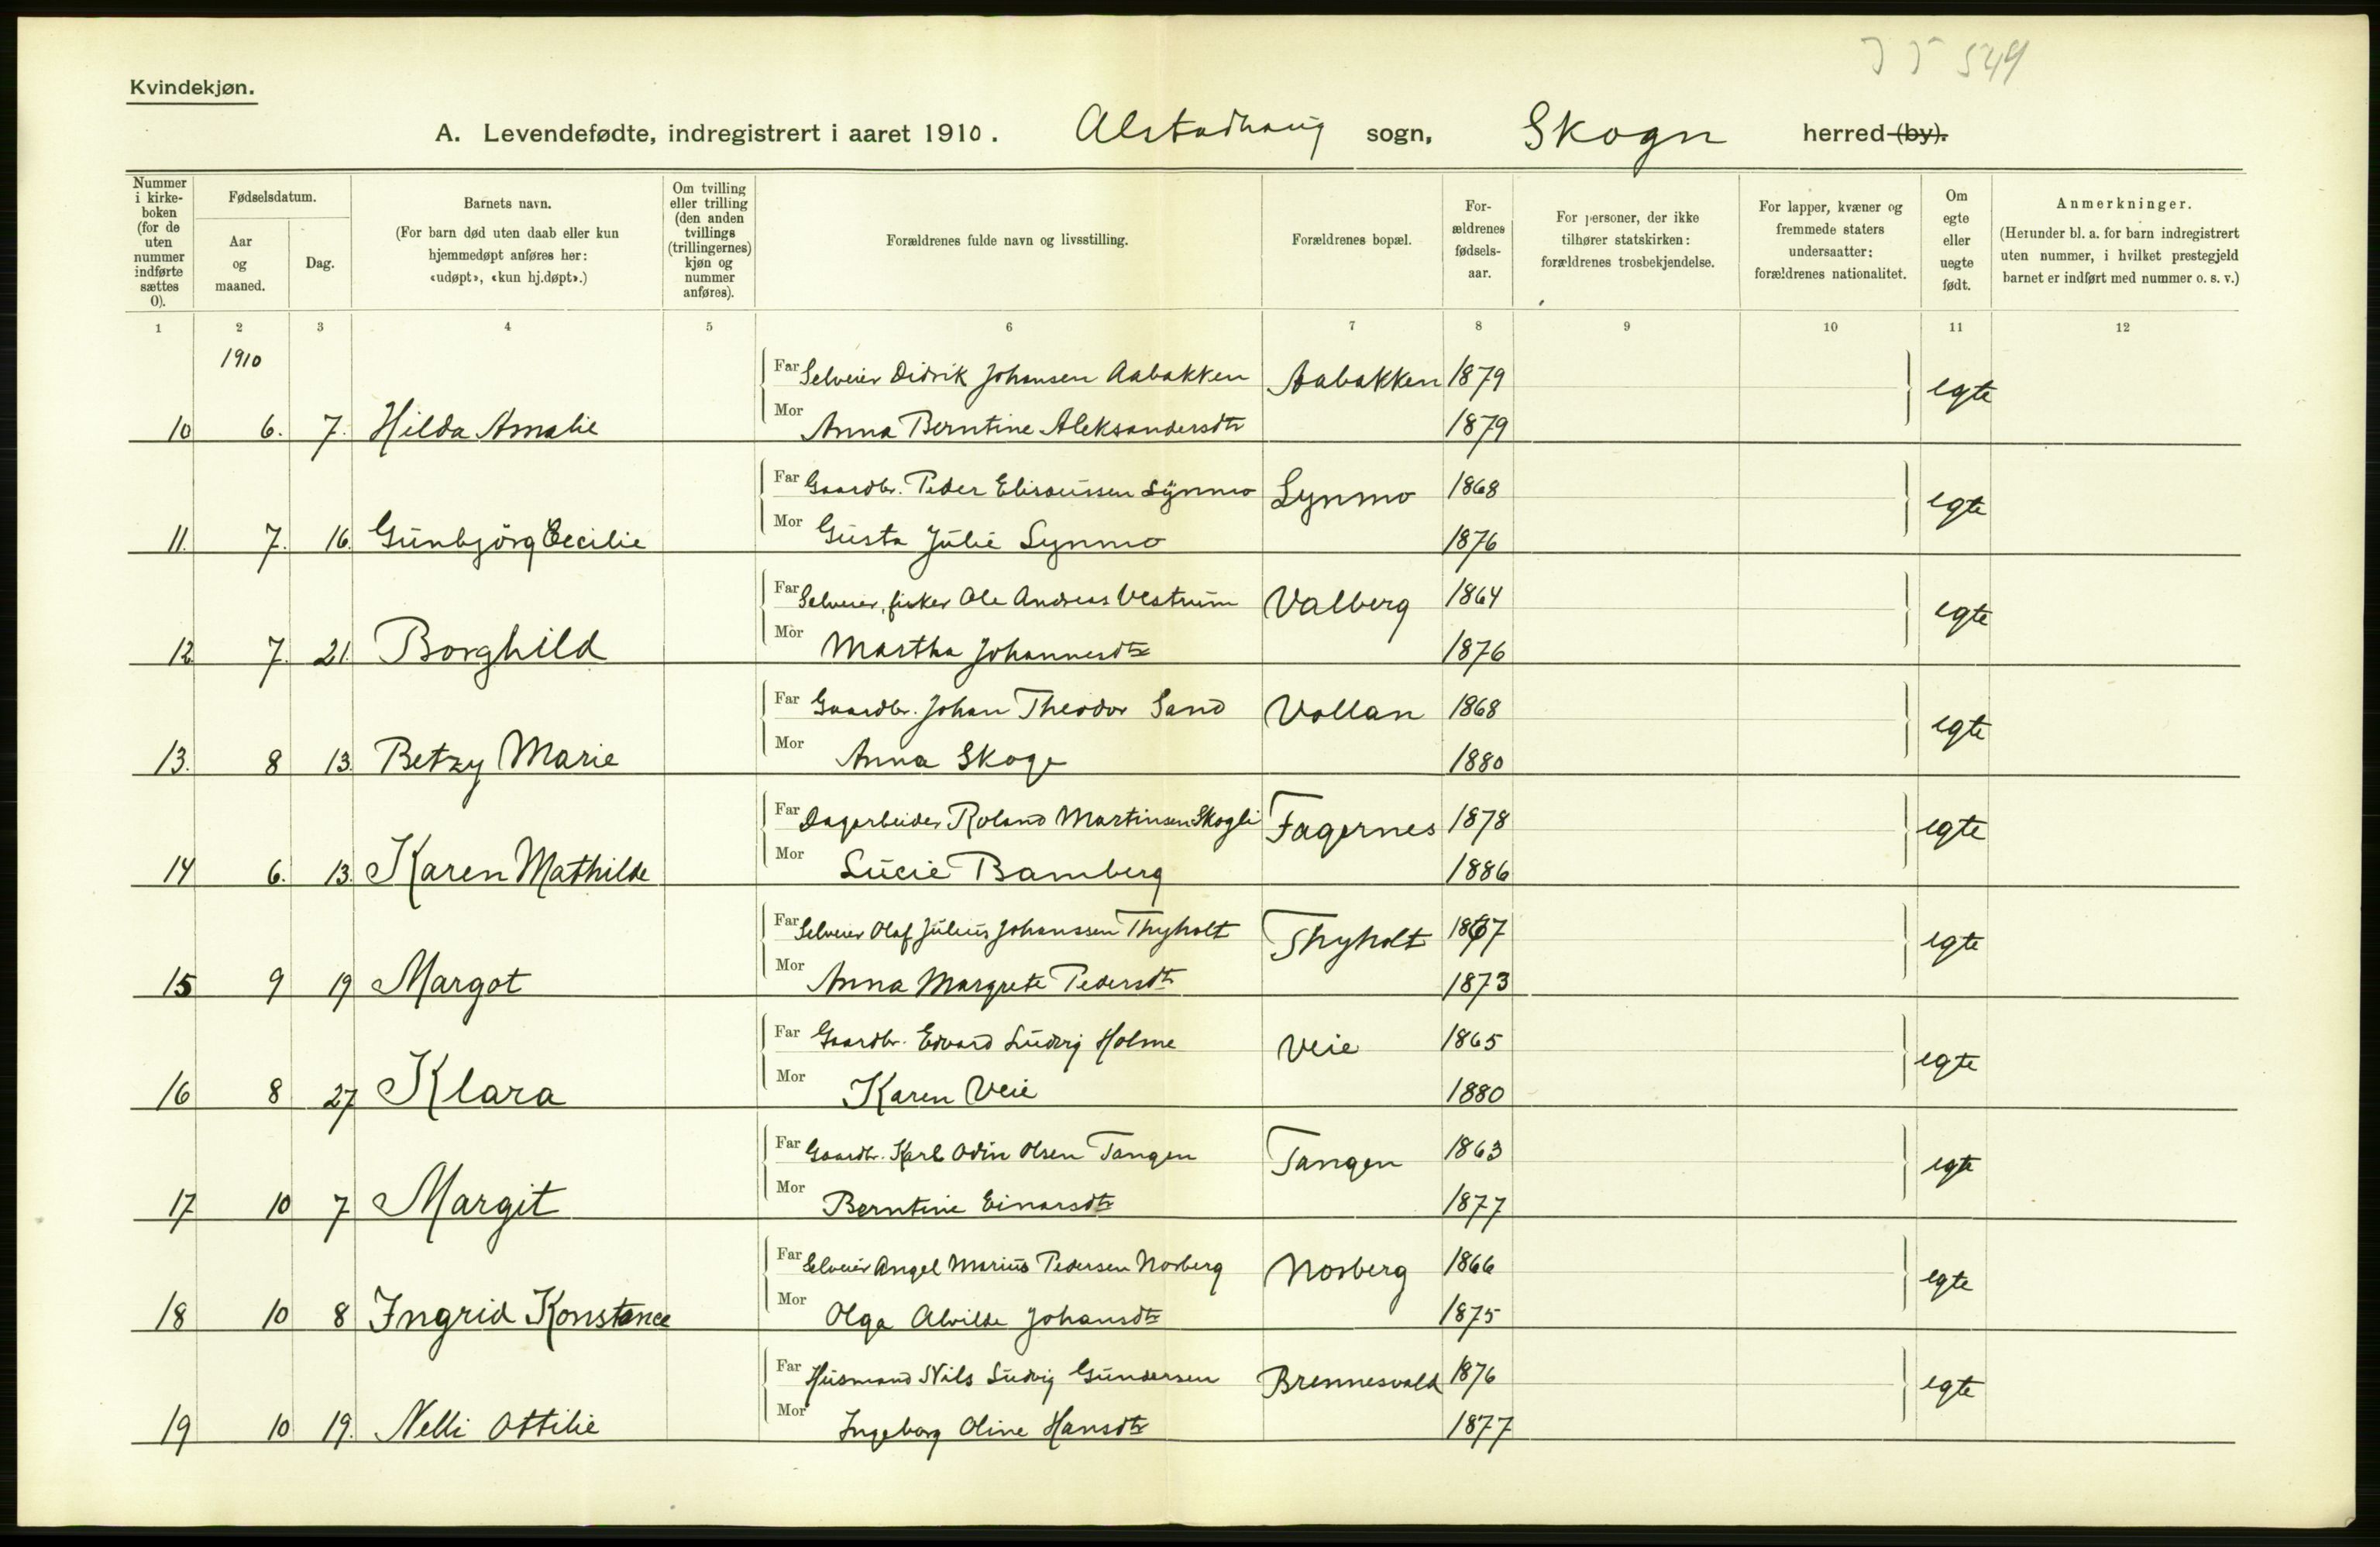 549
Kvindekjøn.
A. Levendefødte, indregistrert i aaret 1910. Alstadhaug sogn, Skogn herred (by).
Nummer i kirkeboken (for de uten nummer indførte sættes 0).
Fødselsdatum.
Aar og maaned.
Dag.
Barnets navn.
(For barn død uten daab eller kun hjemmedøpt anføres her: «udøpt», «kun hj.døpt».)
Om tvilling eller trilling (den anden tvillings (trillingernes) kjøn og nummer anføres).
Forældrenes fulde navn og livsstilling.
Forældrenes bopæl.
Forældrenes fødselsaar.
For personer, der ikke tilhører statskirken: forældrenes trosbekjendelse.
For lapper, kvæner og fremmede staters undersaatter: forældrenes nationalitet.
Om egte eller uegte født.
Anmerkninger.
(Herunder bl. a. for barn indregistrert uten nummer, i hvilket prestegjeld barnet er indført med nummer o. s. v.)
1 2 3 4 5 6 7 8 9 10 11 12
1910
Far Selveier Didrik Johansen Aabakken Aabakken 1879 egte
10 6. 7. Hilda Amalie Mor Anna Berntine Aleksandersdtr 1879
Far Gaardbr. Peder Elisæussen Lynmo Lynmo 1868 egte
11. 7. 16. Gunbjörg Cecilie Mor Gusta Julie Lynmo 1876
Far Selveier, fisker Ole Andreas Vestrum Valberg 1864 egte
12 7. 21. Borghild Mor Martha Johannesdtr 1876
Far Gaardbr. Johan Theodor Sand Vollan 1868 egte
13. 8 13. Betzy Marie Mor Anna Skoge 1880
Far Dagarbeider Roland Martinsen Skogli Fagernes 1878 egte
14 6. 13. Karen Mathilde Mor Lucie Bamberg 1886
Far Selveier Olaf Julius Johanssen Thyholt Thyholt 1867 egte
15 9 19 Margot Mor Anna Margrete Pedersdtr 1873
Far Gaardbr. Edvard Ludvig Holme Veie 1865 egte
16 8 27 Klara Mor Karen Veie 1880
Far Gaardbr. Karl Odin Olsen Tangen Tangen 1863 egte
17 10 7 Margit Mor Berntine Einarsdtr 1877
Far Selveier Angel Marius Pedersen Norberg Norberg 1866 egte
18 10 8 Ingrid Konstance Mor Olga Alvilde Johansdtr 1875
Far Husmand Nils Ludvig Gundersen Brennesvald 1876 egte
19 10 19. Nelli Ottilie Mor Ingeborg Oline Hansdtr 1877